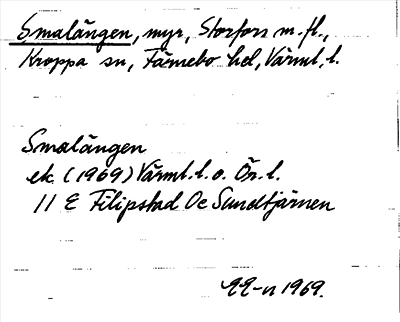 Smalängen, myr, Storfors m. fl.,
Kroppa sn, Färnebo hd, Värml. l.
Smalängen
ek. (1969) Värml. l. o. Ör. l.
11 E Filipstad Oe Sundtjärnen
1969.